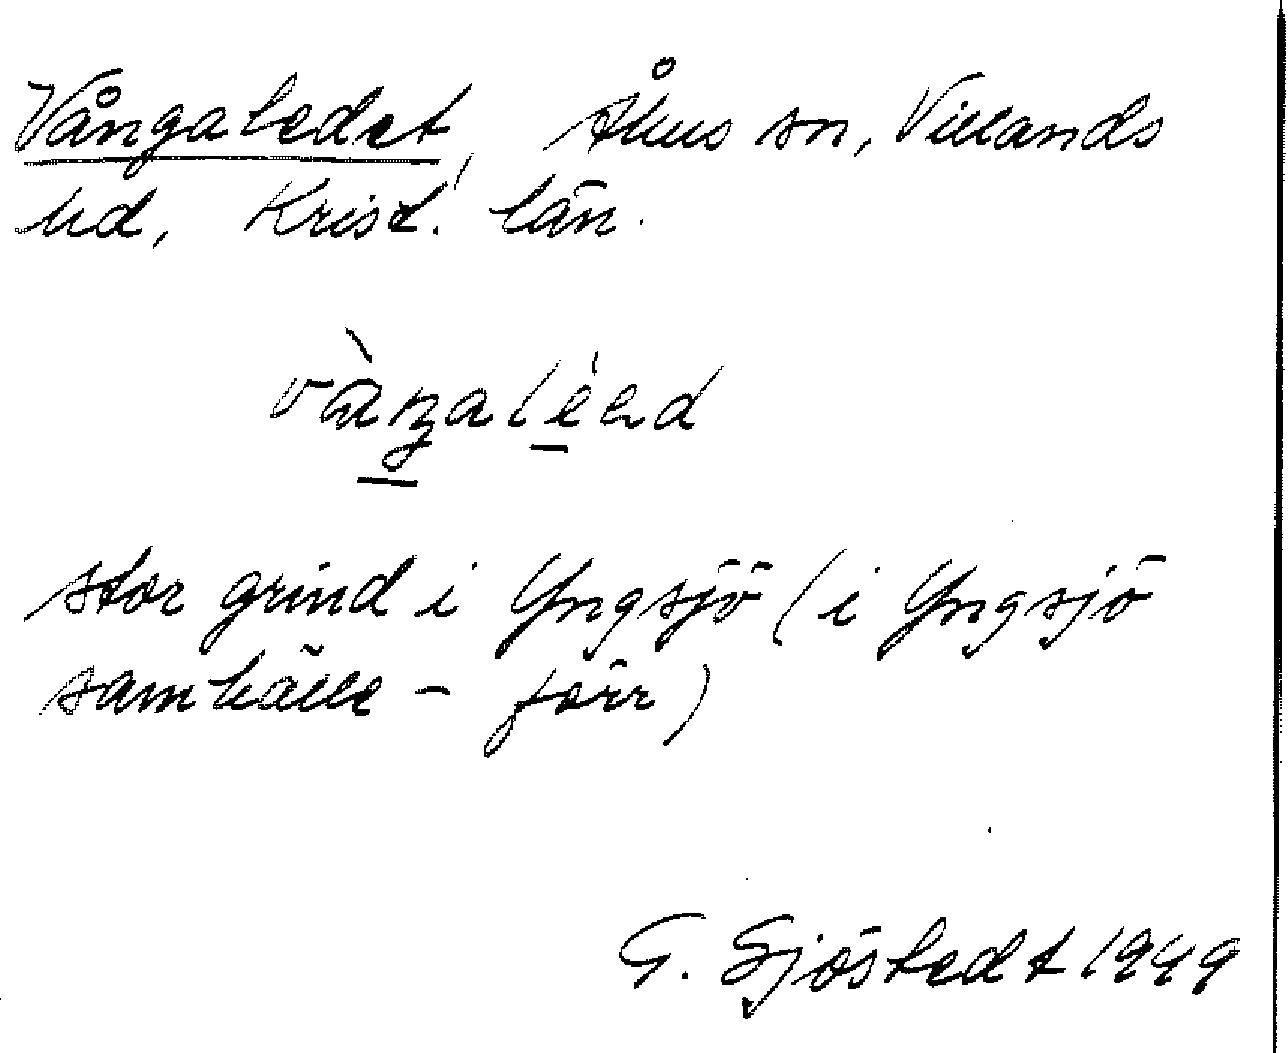 Vångaledet, Åhus sn, Villands
hd, Krist. län.
stor grind i Yngsjö (i Yngsjö
samhälle - förr)
G. Sjöstedt 1949